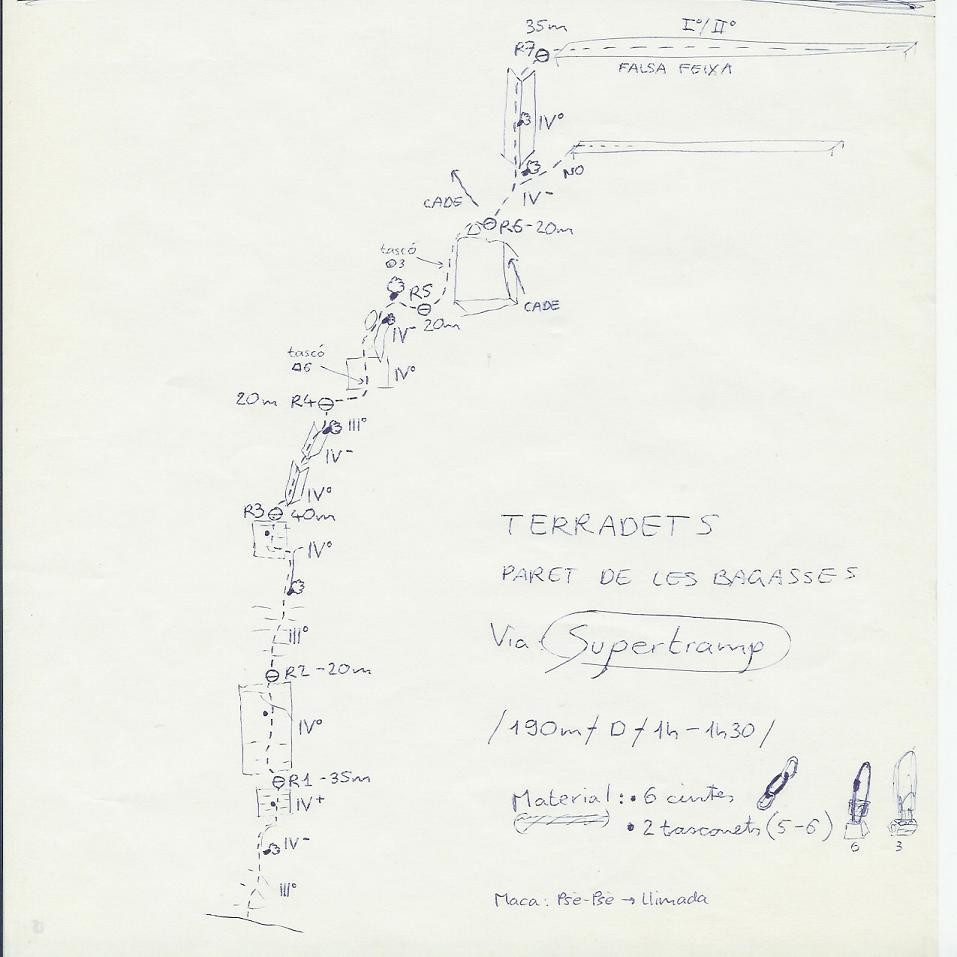 35m
I°/II°
R7
FALSA FEIXA
IV°
NO
IV-
CADE
R6-20m
tascó
Ø3
R5
CADE
20m
IV-
tascó
6
IV°
20m R4
III°
IV-
IV°
R3 40m
IV°
III°
R2-20m
IV°
R1-35m
IV+
IV-
III°
TERRADETS
PARET DE LES BAGASSES
Via Supertramp
/190m/ D / 1h-1h30/
Material: • 6 cintes
• 2 tasconets (5-6)
6 3
Maca: Psè-Psè → Llimada